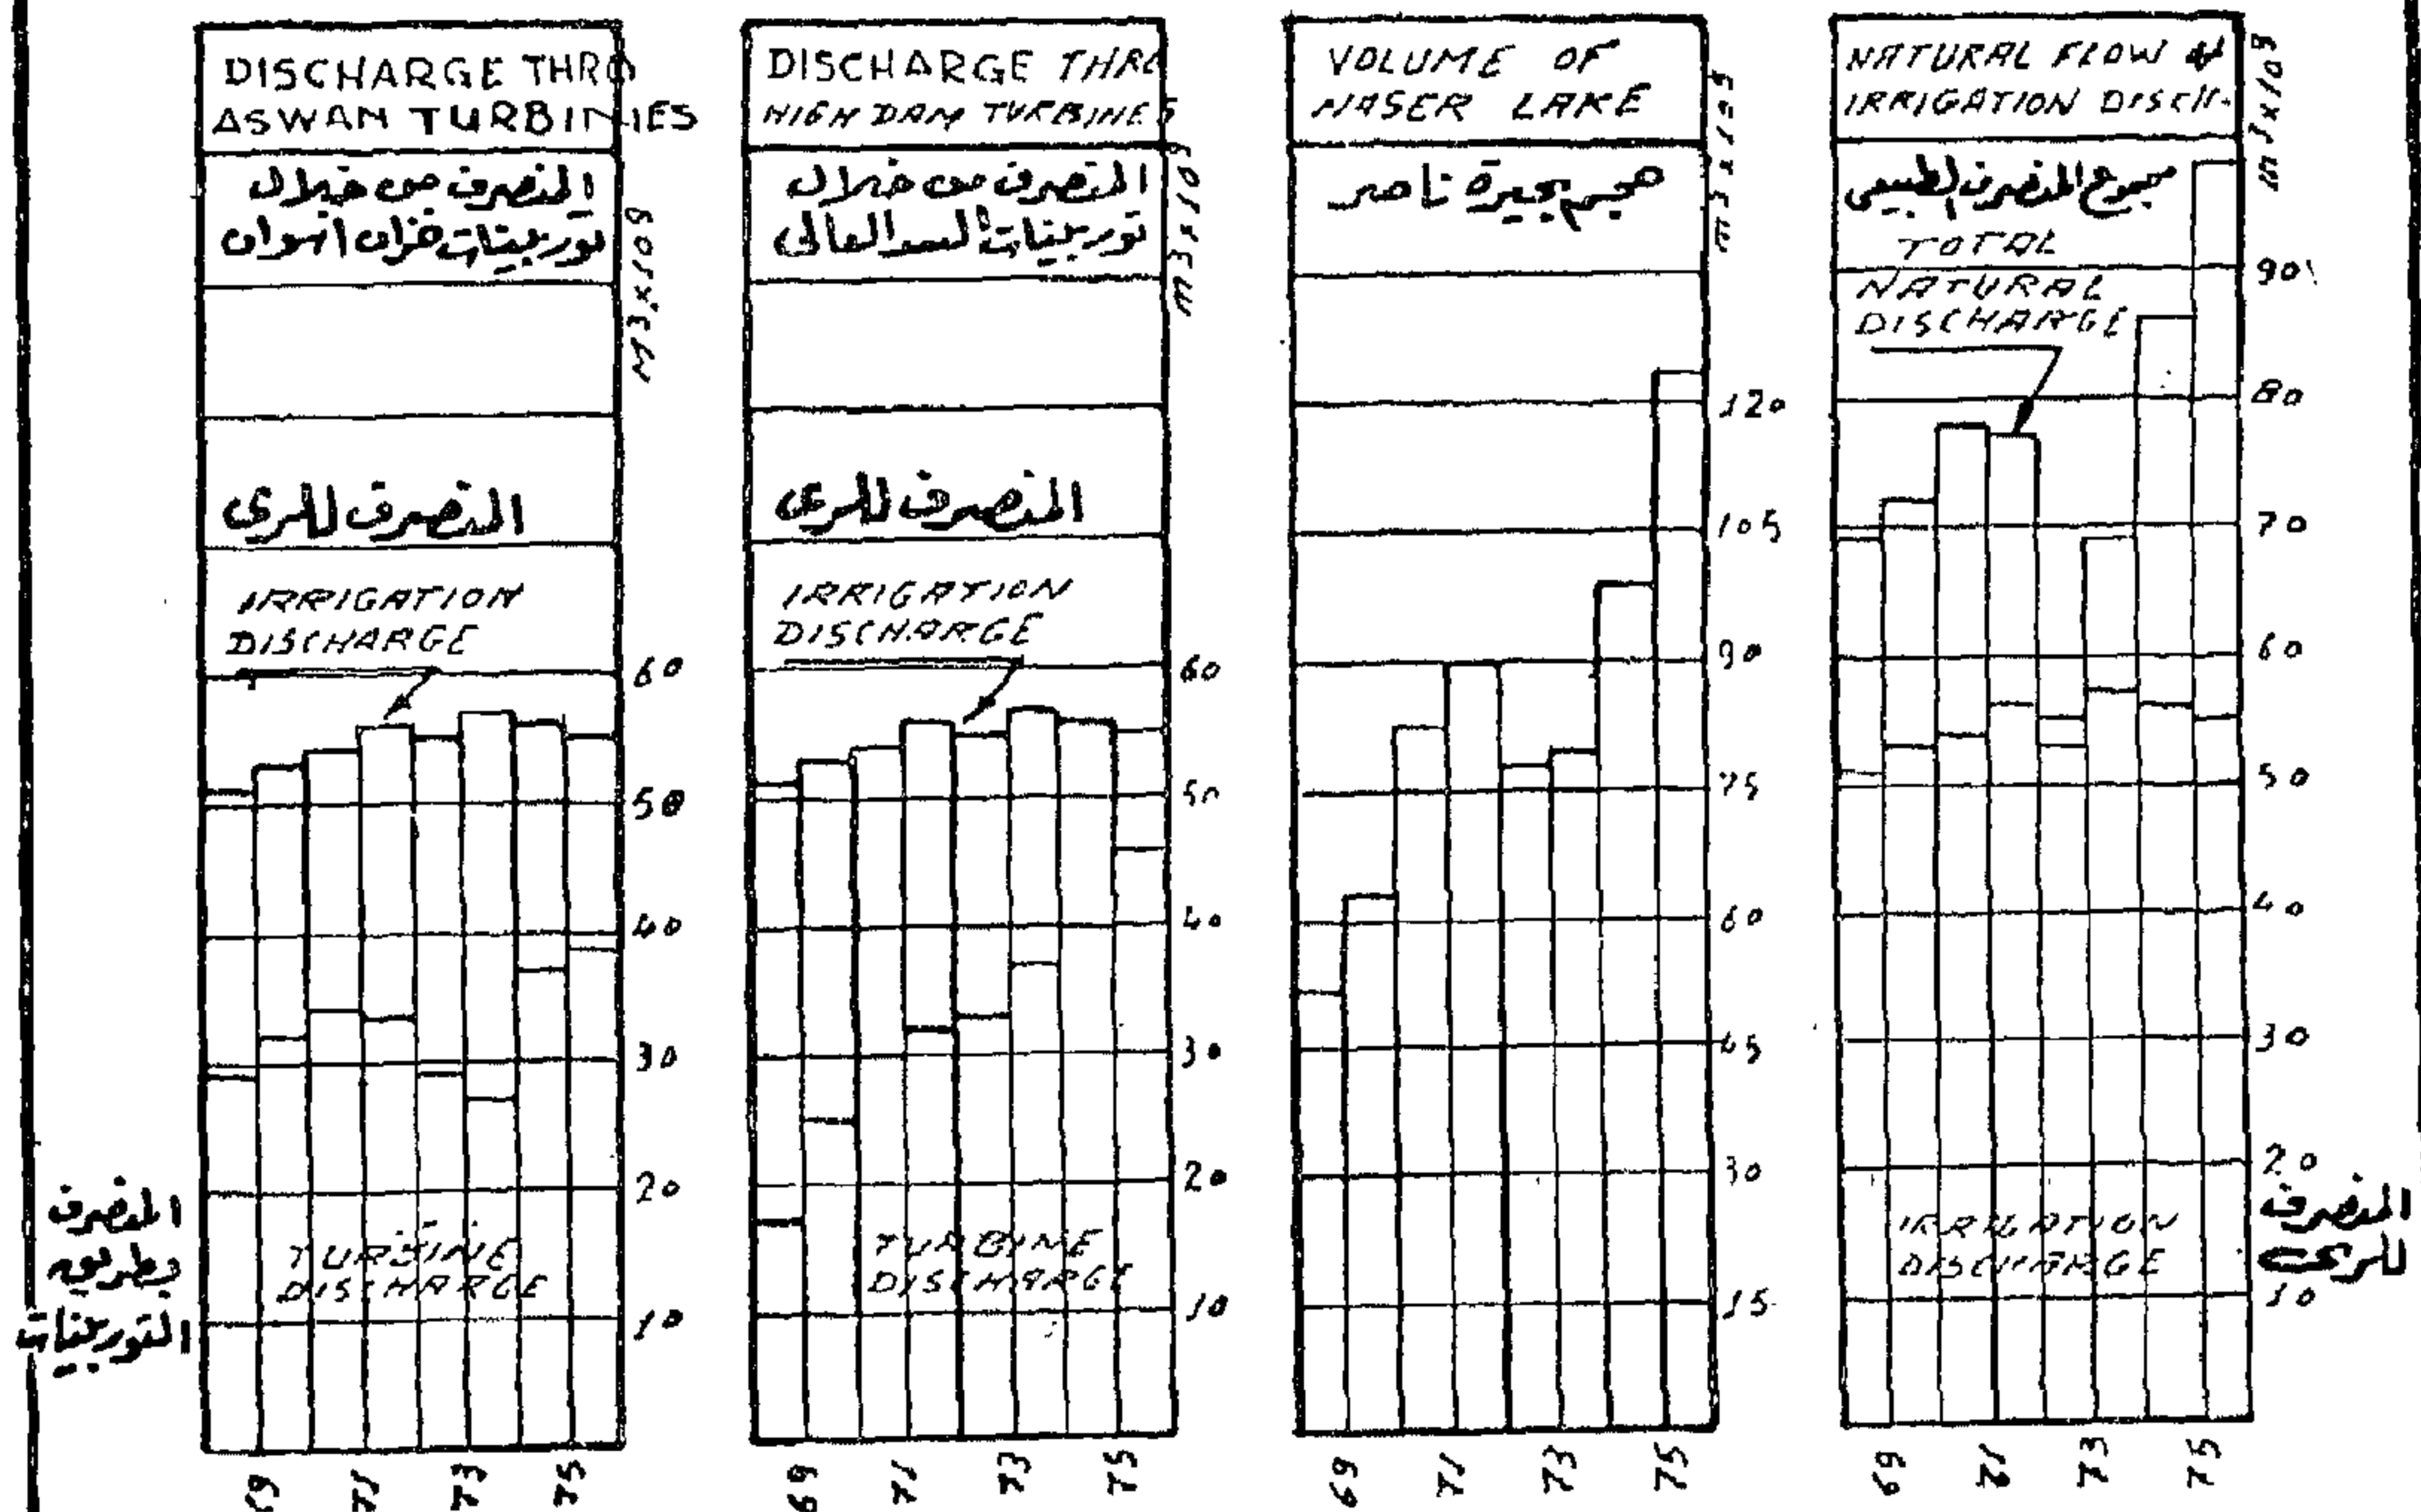 DISCHARGE THRO
ASWAN TURBINIES
المنصرف من خلال
توربينات خزان أسوان
M3x109
المنصرف للرى
IRRIGATION
DISCHARGE
60
50
40
30
20
10
TURBINE
DISCHARGE
المنصرف
بطريق
التوربينات
69
71
73
75
DISCHARGE THRO
HIGH DAM TURBINES
المنصرف من خلال
توربينات السد العالى
m3x109
المنصرف للرى
IRRIGATION
DISCHARGE
60
50
40
30
20
10
TURBINE
DISCHARGE
69
71
73
75
VOLUME OF
NASER LAKE
حجم بحيرة ناصر
120
105
90
75
60
45
30
15
69
71
73
75
NATURAL FLOW &
IRRIGATION DISCH.
m3x109
مجموع المنصرف الطبيعى
TOTAL
NATURAL
DISCHARGE
90
80
70
60
50
40
30
20
10
IRRIGATION
DISCHARGE
المنصرف
للرى
69
71
73
75